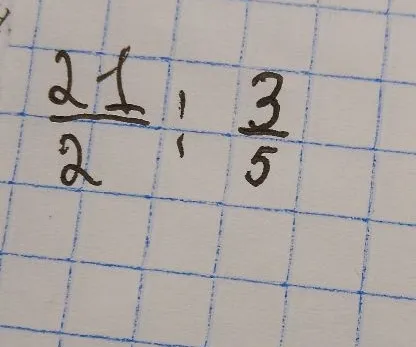 21/2 : 3/5